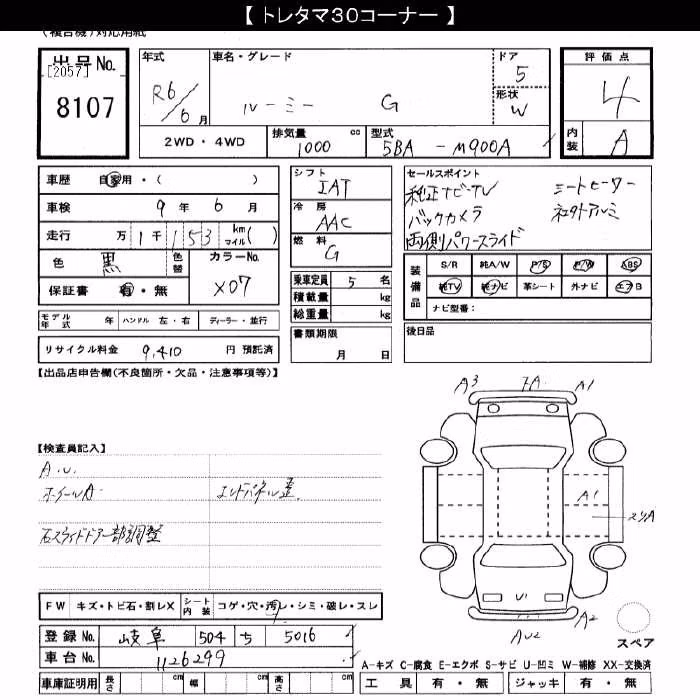 【トレタマ30コーナー】
(複合機)対応用紙
出品No. 年式 車名・グレード ドア 評価点
[2057]
8107 R6/6月 ルーミー G 5 4
形状 W
2WD・4WD 排気量 1000 cc 型式 5BA-M900A 内装 A
車歴 自家用・( )
車検 9年 6月
走行 万 1千 153 km マイル( )
色 黒 色替 カラーNo. X07
保証書 有・無
モデル年式 年 ハンドル 左・右 ディーラー・並行
リサイクル料金 9,410 円 預託済
シフト IAT
冷房 AAC
燃料 G
乗車定員 5 名
積載量 kg
総重量 kg
書類期限
月 日
セールスポイント
純正ナビ・TV シートヒーター
バックカメラ 社外アルミ
両側パワースライド
装備品 S/R 純A/W P/S P/W ABS
純TV 純ナビ 革シート 外ナビ エアB
ナビ型番:
後日品
【出品店申告欄(不良箇所・欠品・注意事項等)】
【検査員記入】
A.U.
ホイールA. エンドパネル歪
右スライドドアー部調整
A3 A A1
A1
スリA
U1
A2
AU2
スペア
FW キズ・トビ石・割レX シート内装 コゲ・穴・汚レ・シミ・破レ・スレ
登録No. 岐阜 504 ち 5016
車台No. 1126299
A-キズ C-腐食 E-エクボ S-サビ U-凹ミ W-補修 XX-交換済
車庫証明用 長さ cm 幅 cm 高さ cm 工具 有・無 ジャッキ 有・無